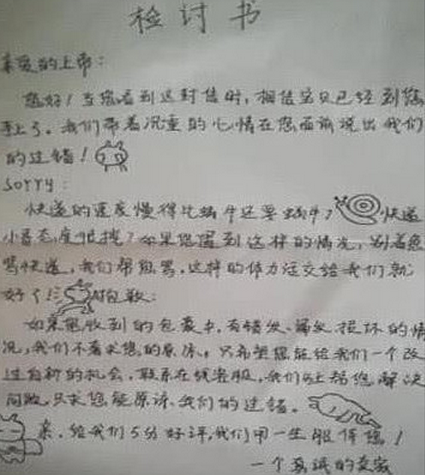 检讨书
亲爱的上帝:
您好!当您看到这封信时,相信宝贝已经到您
手上了。我们带着沉重的心情在您面前说出我们
的过错!
sorry:
快递的速度慢得比蜗牛还要蜗牛?快递
小哥态度很拽?如果您遇到这样的情况,别着急
骂快递,我们帮您骂,这样的体力活交给我们就
好了!抱歉:
如果您收到的包裹中,有错发、漏发、损坏的情
况,我们不奢求您的原谅。只希望您能给我们一个改
过自新的机会,联系在线客服,我们马上帮您解决
问题,只求您能原谅我们的过错。
亲,给我们5分好评,我们用一生服侍您!
一个真诚的卖家